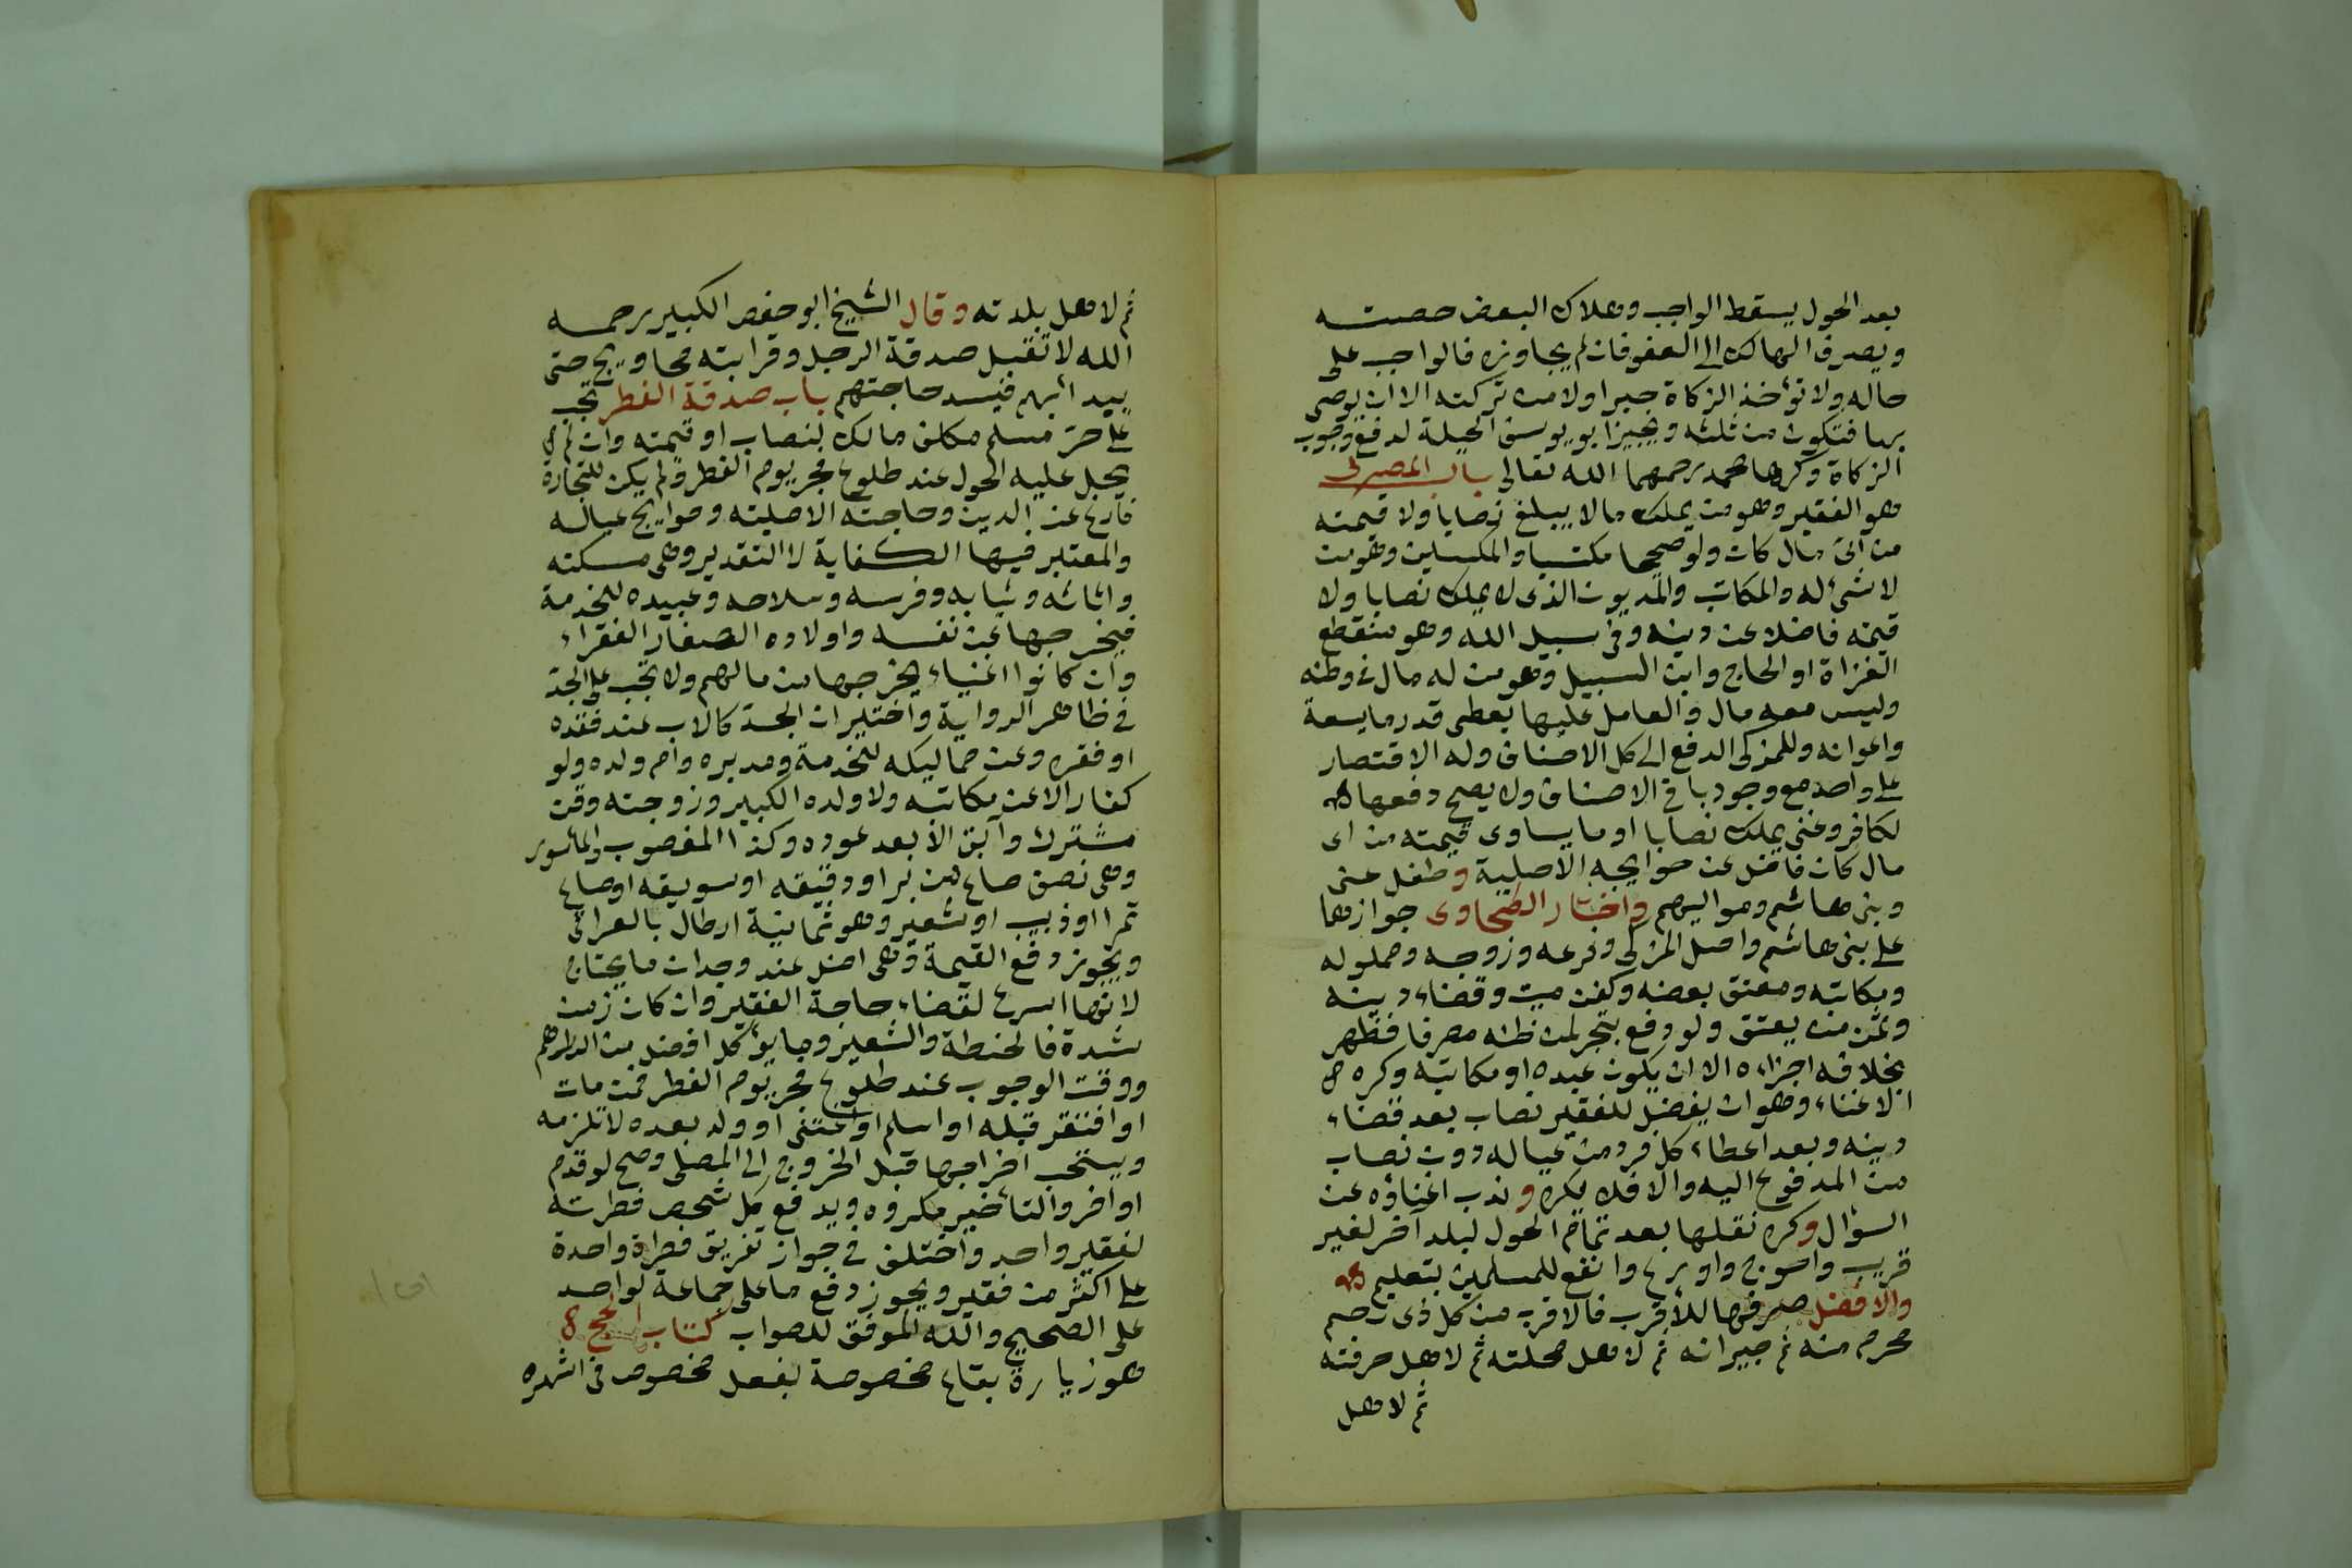 بعد الحول يسقط الواجب وهلاك البعض حصته
ويصرف الهالك الى العفو فان لم يجاوزه فالواجب على
حاله ولا تؤخذ الزكاة جبرا ولا من تركته الا ان يوصى
بها فتكون من ثلثه ويجيز ابو يوسف الحيلة لدفع وجوب
الزكاة وكرهها محمد رحمهما الله تعالى باب المصرف
هو الفقير وهو من يملك مالا يبلغ نصابا ولا قيمته
من اى مال كان ولو صحيحا مكتسبا والمسكين وهو من
لا شئ له والمكاتب والمديون الذى لا يملك نصابا ولا
قيمته فاضلا عن دينه وفى سبيل الله وهو منقطع
الغزاة او الحاج وابن السبيل وهو من له مال فى وطنه
وليس معه مال والعامل عليها يعطى قدر ما يسعه
واعوانه وللمزكى الدفع الى كل الاصناف وله الاقتصار
على واحد مع وجود باقى الاصناف ولا يصح دفعها
لكافر وغنى يملك نصابا او ما يساوى قيمته من اى
مال كان فاضل عن حوايجه الاصلية وطفل غنى
وبنى هاشم ومواليهم واختار الطحاوى جوازها
على بنى هاشم واصل المزكى وفرعه وزوجه ومملوكه
ومكاتبه ومعتق بعضه وكفن ميت وقضاء دينه
وثمن من يعتق ولو دفع بتحر لمن ظنه مصرفا فظهر
بخلافه اجزاءه الا ان يكون عبده او مكاتبه وكره
الاغناء وهو ان يفضل للفقير نصاب بعد قضاء
دينه وبعد اعطاء كل فرد من عياله دون نصاب
من المدفوع اليه والا فلا يكره وندب اغناؤه عن
السؤال وكره نقلها بعد تمام الحول لبلد آخر لغير
قريب واحوج واورع وانفع للمسلمين بتعليم
والافضل صرفها للاقرب فالاقرب من كل ذى رحم
محرم منه ثم جيرانه ثم لاهل محلته ثم لاهل حرفته
ثم لاهل
ثم لاهل بلدته وقال الشيخ ابو حفص الكبير رحمه
الله لا تقبل صدقة الرجل وقرابته محاويج حتى
يبدا بهم فيسد حاجتهم باب صدقة الفطر تجب
على حر مسلم مكلف مالك لنصاب او قيمته وان لم
يحل عليه الحول عند طلوع فجر يوم الفطر ولم يكن للتجارة
فارغ عن الدين وحاجته الاصلية وحوايج عياله
والمعتبر فيها الكفاية لا التقدير وهى مسكنه
واثاثه وثيابه وفرسه وسلاحه وعبيده للخدمة
فيخرجها عن نفسه واولاده الصغار الفقراء
وان كانوا اغنياء يخرجها من مالهم ولا تجب على الجد
فى ظاهر الرواية واختير ان الجد كالاب عند فقده
او فقره وعن مماليكه للخدمة ومدبره وام ولده ولو
كفارا لا عن مكاتبه ولا ولده الكبير وزوجته وقن
مشترك وآبق الا بعد عوده وكذا المغصوب والمأسور
وهى نصف صاع من بر او دقيقه او سويقه او صاع
تمر او زبيب او شعير وهو ثمانية ارطال بالعراقى
ويجوز دفع القيمة وهى افضل عند وجدان ما يحتاج
لانها اسرع لقضاء حاجة الفقير وان كان زمن
شدة فالحنطة والشعير وما يؤكل افضل من الدراهم
ووقت الوجوب عند طلوع فجر يوم الفطر فمن مات
او افتقر قبله او اسلم او اغتنى او ولد بعده لا تلزمه
ويستحب اخراجها قبل الخروج الى المصلى وصح لو قدم
او اخر والتأخير مكروه ويدفع كل شخص فطرته
لفقير واحد واختلف فى جواز تفريق فطرة واحدة
على اكثر من فقير ويجوز دفع ما على جماعة لواحد
على الصحيح والله الموفق للصواب كتاب الحج
هو زيارة بقاع مخصوصة بفعل مخصوص فى اشهره